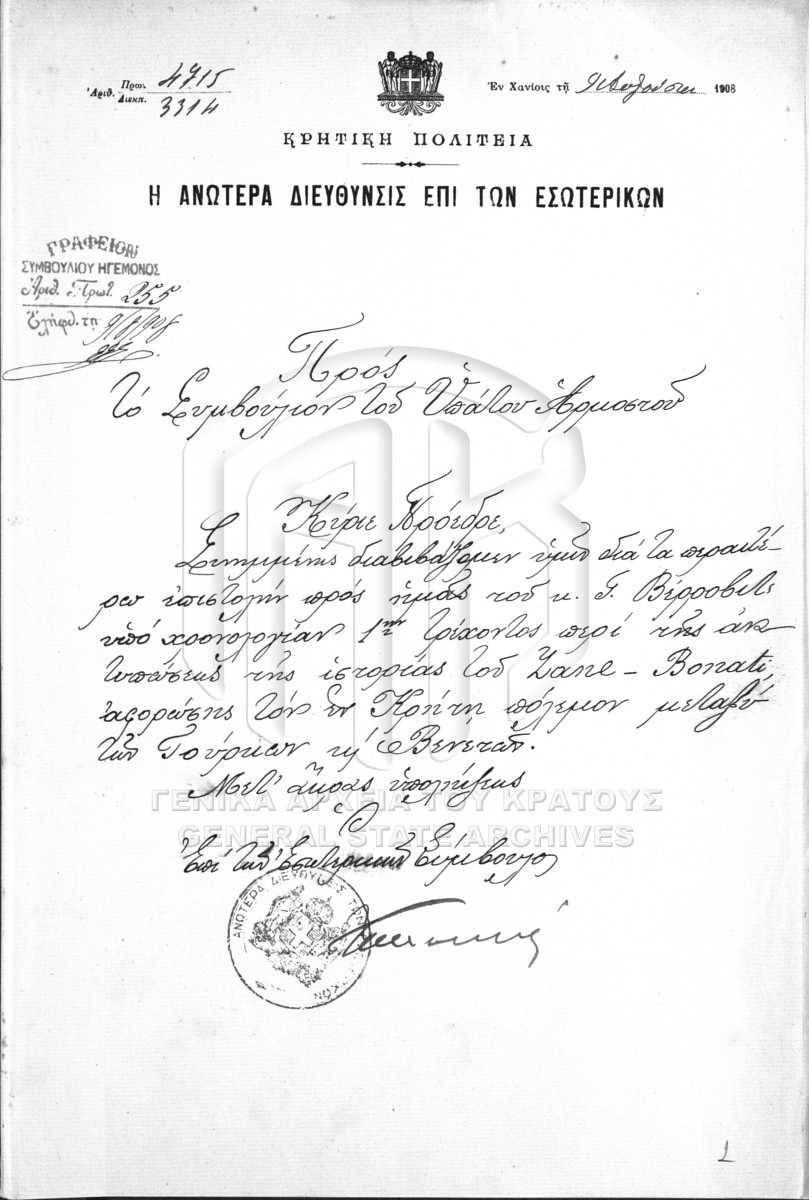 Ἀριθ. Πρωτ. 4715
Διεκπ. 3314
Ἐν Χανίοις τῇ 9 Αὐγούστου 1908
ΚΡΗΤΙΚΗ ΠΟΛΙΤΕΙΑ
Η ΑΝΩΤΕΡΑ ΔΙΕΥΘΥΝΣΙΣ ΕΠΙ ΤΩΝ ΕΣΩΤΕΡΙΚΩΝ
ΓΡΑΦΕΙΟΝ
ΣΥΜΒΟΥΛΙΟΥ ΗΓΕΜΟΝΟΣ
Ἀριθ. Πρωτ. 255
Ἐλήφθ. τῇ 9/8/908
Πρός
τό Συμβούλιον τοῦ Ὑπάτου Ἁρμοστοῦ
Κύριε Πρόεδρε,
Συνημμένως διαβιβάζομεν ὑμῖν διά τα περαιτέ-
ρω ἐπιστολήν πρός ἡμᾶς τοῦ κ. Γ.
ὑπό χρονολογίαν 1ην τρέχοντος περί τῆς ἀνα
τυπώσεως τῆς ἱστορίας τοῦ Zane - Bonati,
ἀφορώσης τόν ἐν Κρήτῃ πόλεμον μεταξύ
τῶν Τούρκων κ' Βενετῶν.
Μετ' ἄκρας ὑπολήψεως
Ὁ
Ἐπί τῶν Ἐσωτερικῶν Σύμβουλος
ΑΝΩΤΕΡΑ ΔΙΕΥΘΥΝΣΙΣ ΤΩΝ
ΓΕΝΙΚΑ ΑΡΧΕΙΑ ΤΟΥ ΚΡΑΤΟΥΣ
GENERAL STATE ARCHIVES
1